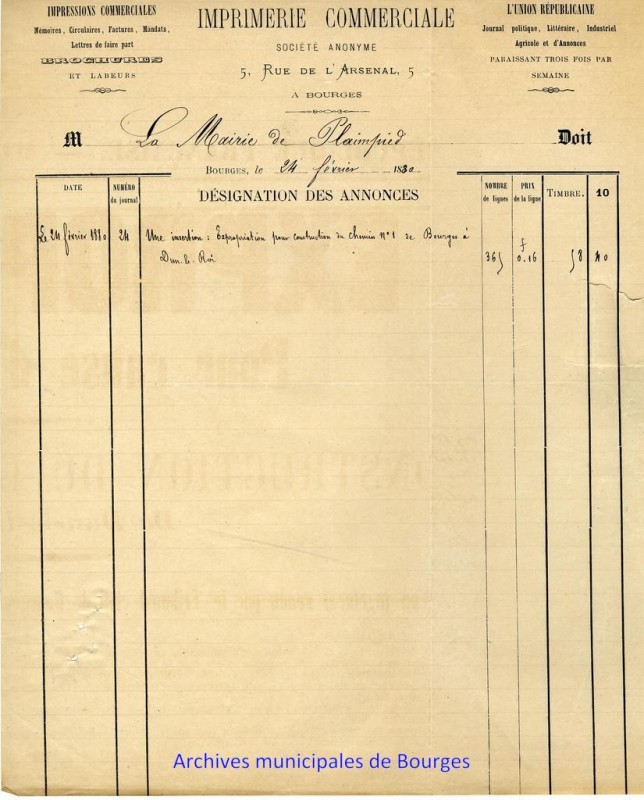 IMPRESSIONS COMMERCIALES
Mémoires, Circulaires, Factures, Mandats,
Lettres de faire part
BROCHURES
ET LABEURS
IMPRIMERIE COMMERCIALE
SOCIÉTÉ ANONYME
5, RUE DE L'ARSENAL, 5
A BOURGES
L'UNION RÉPUBLICAINE
Journal politique, Littéraire, Industriel
Agricole et d'Annonces
PARAISSANT TROIS FOIS PAR
SEMAINE
M La Mairie de Plaimpied Doit
BOURGES, le 24 février 1880
DATE
NUMÉRO du journal
DÉSIGNATION DES ANNONCES
NOMBRE de lignes
PRIX de la ligne
TIMBRE.
10
Le 24 février 1880 24 Une insertion : Expropriation pour construction du chemin n° 1 de Bourges à
Dun-le-Roi 365 f 0.16 58 40
Archives municipales de Bourges